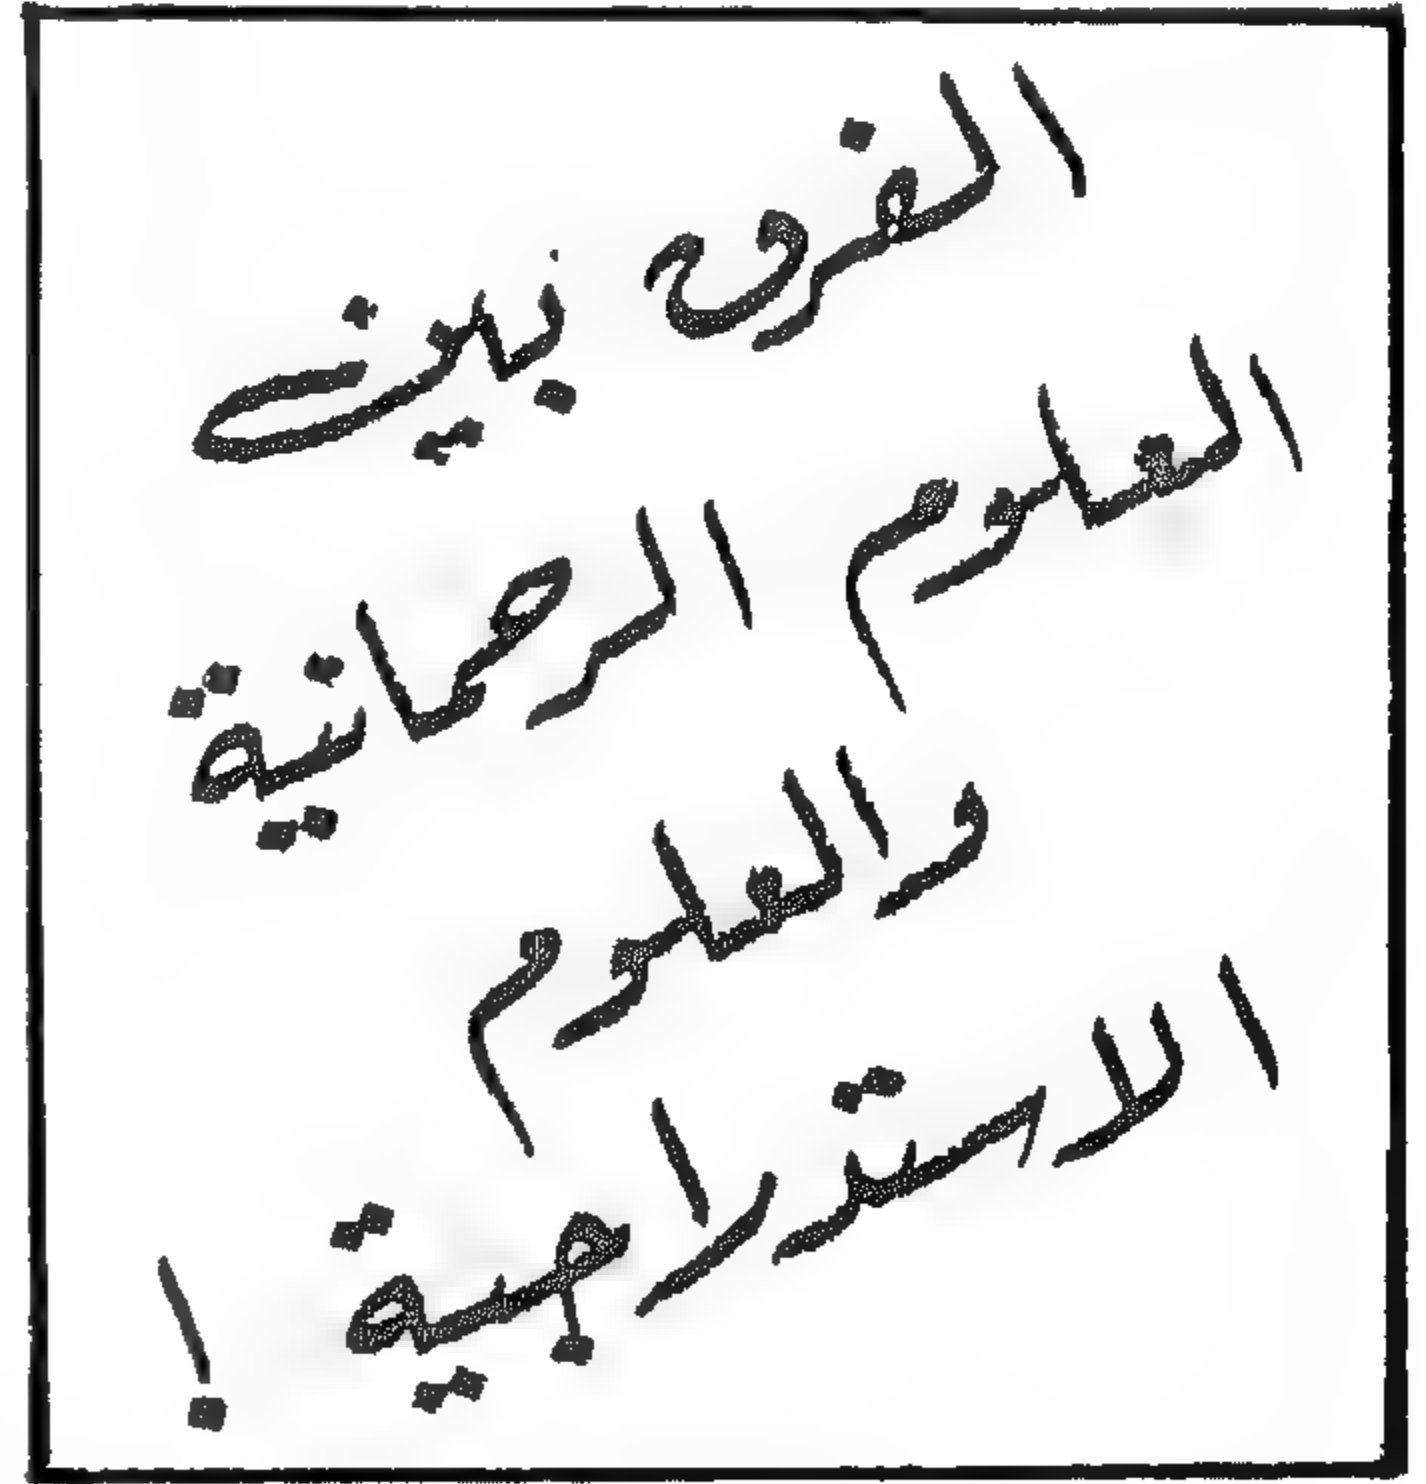 الفرق بين
العلوم الرحمانية
والعلوم
الاستدراجية !